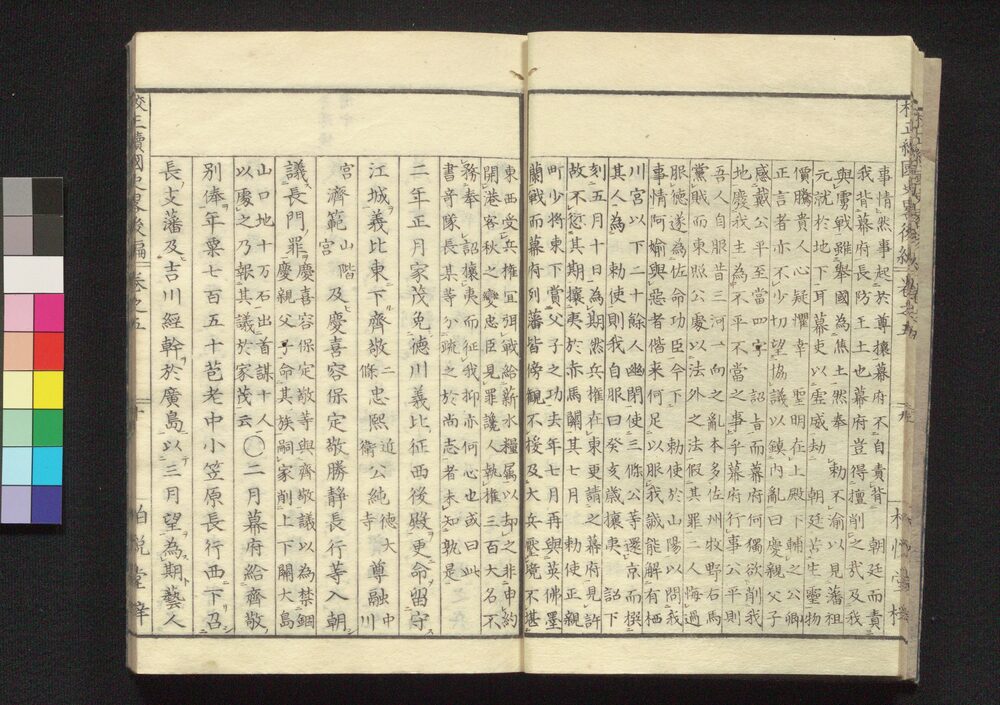 事情然事起於尊攘幕府不自責背 朝廷而責
我背幕府長防王土也幕府豈得擅削之哉及我
與虜戰雖舉國為焦土然奉 勅不渝以見藩祖
元就於地下耳幕吏以虛威劫 朝廷苦生靈物
價騰貴人心疑懼幸 聖明在上殿下輔之公卿
正言者亦不少切望協議以鎮內亂曰慶親父子
感戴公平至當四字 詔旨而幕府何獨欲削我
地慶我主為不平不當之事乎幕府行事公平則
吾人自服昔三河一向之亂本多佐州牧野石馬
黨賊而東照公處以法外之法假其罪二人悔過
服德遂為佐命功臣今下 勅使於山陽以問我
事情阿諭與惡者偕来何足以服我誠能解有栖
川宮以下二十餘人幽閉使三條公等還京而撰
其人為 勅使則我自服曰癸亥歲攘夷 詔下
刻五月十日為期然兵權在東更請之幕府見許
故不愆其期攘夷於赤馬關其七月 勅使正親
町少将東下賞父子之功去年七月再與英佛墨
蘭戰而幕府列藩皆傍觀不援及大兵壓境不堪
東西受兵權宜弭戰給薪水糧属以却之非申約
開港客秋之變忠臣見罪讒人執權三百大名不
務奉 詔攘夷而征我抑亦何心也或曰此
書奇隊長某等分疏之於尚志者未知孰是
二年正月家茂免德川義比征西後殿更命留守
江城義比東下齊敬二條忠熙近衛公純德大寺尊融中川
宮濟範山階宮及慶喜容保定敬勝静長行等入朝
議長門罪慶喜容保定敬等與齊敬議以為禁錮
慶親父子命其族嗣家削上下關大島
山口地十万石出首謀十人
以處之乃報其議於家茂云〇二月幕府給齊敬
別俸年粟七百五十苞老中小笠原長行西下召
長支藩及吉川經幹於廣島以三月望為期藝人
校正續國史畧後編 卷之五 十 柏悅堂梓